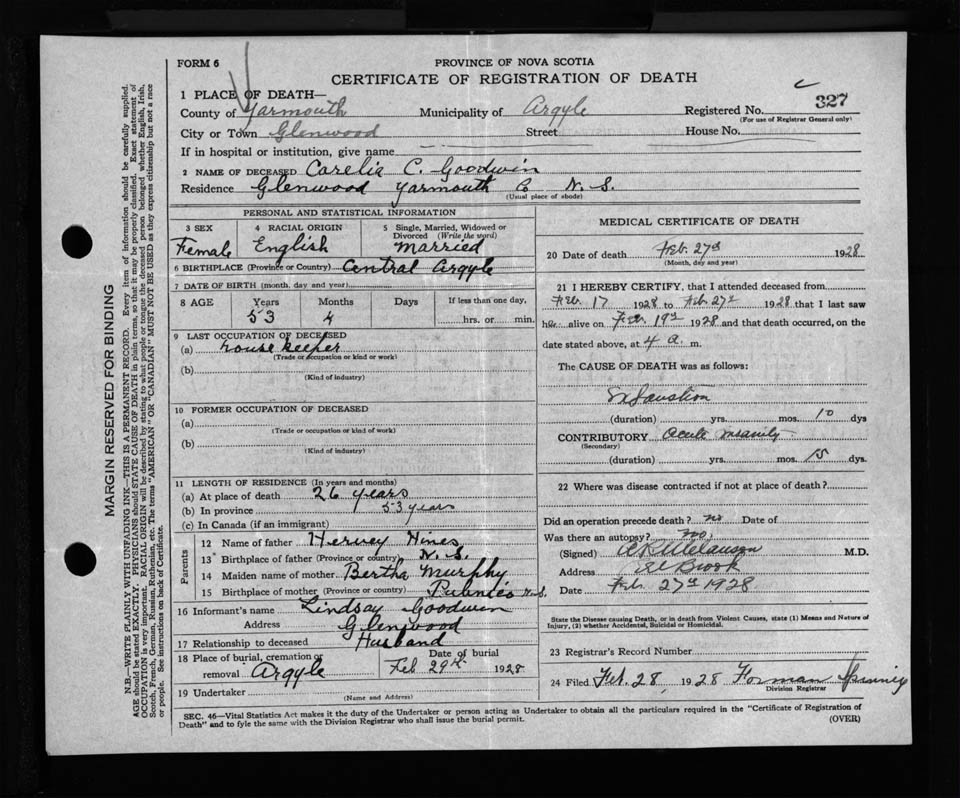 FORM 6
PROVINCE OF NOVA SCOTIA
CERTIFICATE OF REGISTRATION OF DEATH
327
1 PLACE OF DEATH—
County of Yarmouth Municipality of Argyle Registered No.
(For use of Registrar General only)
City or Town Glenwood Street House No.
If in hospital or institution, give name
2 NAME OF DECEASED Carelia C. Goodwin
Residence Glenwood Yarmouth Co N. S.
(Usual place of abode)
PERSONAL AND STATISTICAL INFORMATION
3 SEX 4 RACIAL ORIGIN 5 Single, Married, Widowed or Divorced (Write the word)
Female English Married
6 BIRTHPLACE (Province or Country) Central Argyle
7 DATE OF BIRTH (month, day and year)
8 AGE Years Months Days If less than one day,
53 4 hrs. or min.
9 LAST OCCUPATION OF DECEASED
(a) House keeper
(Trade or occupation or kind or work)
(b)
(Kind of industry)
10 FORMER OCCUPATION OF DECEASED
(a)
(Trade or occupation or kind of work)
(b)
(Kind of industry)
11 LENGTH OF RESIDENCE (In years and months)
(a) At place of death 26 years
(b) In province 53 years
(c) In Canada (if an immigrant)
Parents
12 Name of father Hervey Hines
13 Birthplace of father (Province or country) N. S.
14 Maiden name of mother Bertha Murphy
15 Birthplace of mother (Province or country) Pubnico N.S.
16 Informant's name Lindsay Goodwin
Address Glenwood
17 Relationship to deceased Husband
18 Place of burial, cremation or removal Argyle Date of burial Feb 29th 1928
19 Undertaker
(Name and Address)
MEDICAL CERTIFICATE OF DEATH
20 Date of death Feb. 27th 1928
(Month, day and year)
21 I HEREBY CERTIFY, that I attended deceased from
Feb. 17 1928 to Feb. 27th 1928 that I last saw
her alive on Feb 19th 1928 and that death occurred, on the
date stated above, at 4 a. m.
The CAUSE OF DEATH was as follows:
Exhaustion
(duration) yrs. mos. 10 dys
CONTRIBUTORY Acute Insanity
(Secondary)
(duration) yrs. mos. 15 dys.
22 Where was disease contracted if not at place of death?
Did an operation precede death? no Date of
Was there an autopsy? no
(Signed) M.D.
Address Brook
Date Feb 27th 1928
State the Disease causing Death, or in death from Violent Causes, state (1) Means and Nature of
Injury, (2) whether Accidental, Suicidal or Homicidal.
23 Registrar's Record Number
24 Filed Feb. 28, 1928 Forman
Division Registrar
SEC. 46—Vital Statistics Act makes it the duty of the Undertaker or person acting as Undertaker to obtain all the particulars required in the "Certificate of Registration of
Death" and to fyle the same with the Division Registrar who shall issue the burial permit.
(OVER)
MARGIN RESERVED FOR BINDING
N.B.—WRITE PLAINLY WITH UNFADING INK—THIS IS A PERMANENT RECORD. Every item of information should be carefully supplied.
AGE should be stated EXACTLY. PHYSICIANS should STATE CAUSE OF DEATH in plain terms, so that it may be properly classified. Exact statement of
OCCUPATION is very important. RACIAL ORIGIN will be described by stating to what people or tongue the deceased person belonged whether English, Irish,
Scotch, French, German, Russian, Ruthenian, etc. The terms "AMERICAN" OR "CANADIAN" MUST NOT BE USED as they express citizenship but not a race
or people. See instructions on back of Certificate.